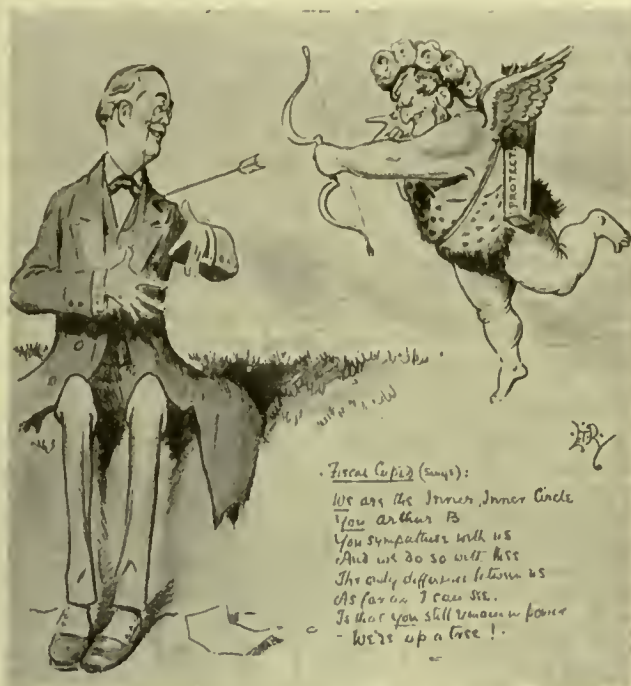 PROTECT
Fiscal Cupid (Sings):
We are the Inner, Inner Circle
You Arthur B
You sympathise with us
And we do so with thee
The only difference between us
As far as I can see.
Is that you still remain in power
- We're up a tree!